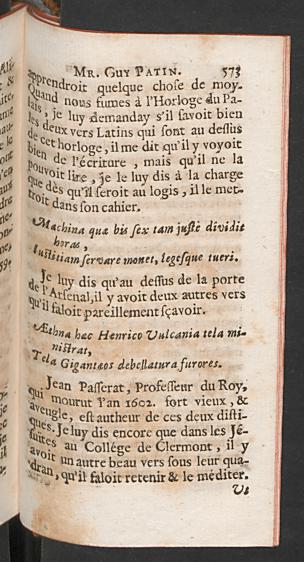 MR. GUY PATIN. 573
apprendroit quelque chose de moy.
Quand nous fumes à l'Horloge du Pa-
lais, je luy demanday s'il savoit bien
les deux vers Latins qui sont au dessus
de cet horloge, il me dit qu'il y voyoit
bien de l'écriture, mais qu'il ne la
pouvoit lire, je le luy dis à la charge
que dès qu'il seroit au logis, il le met-
troit dans son cahier.
Machina quæ bis sex tam justè dividit
horas,
Justitiam servare monet, legesque tueri.
Je luy dis qu'au dessus de la porte
de l'Arsenal, il y avoit deux autres vers
qu'il faloit pareillement sçavoir.
Æthna hæc Henrico Vulcania tela mi-
nistrat,
Tela Gigantæos debellatura furores.
Jean Passerat, Professeur du Roy,
qui mourut l'an 1602. fort vieux, &
aveugle, est autheur de ces deux disti-
ques. Je luy dis encore que dans les Jé-
suites au Collége de Clermont, il y
avoit un autre beau vers sous leur qua-
dran, qu'il faloit retenir & le méditer.
Ut